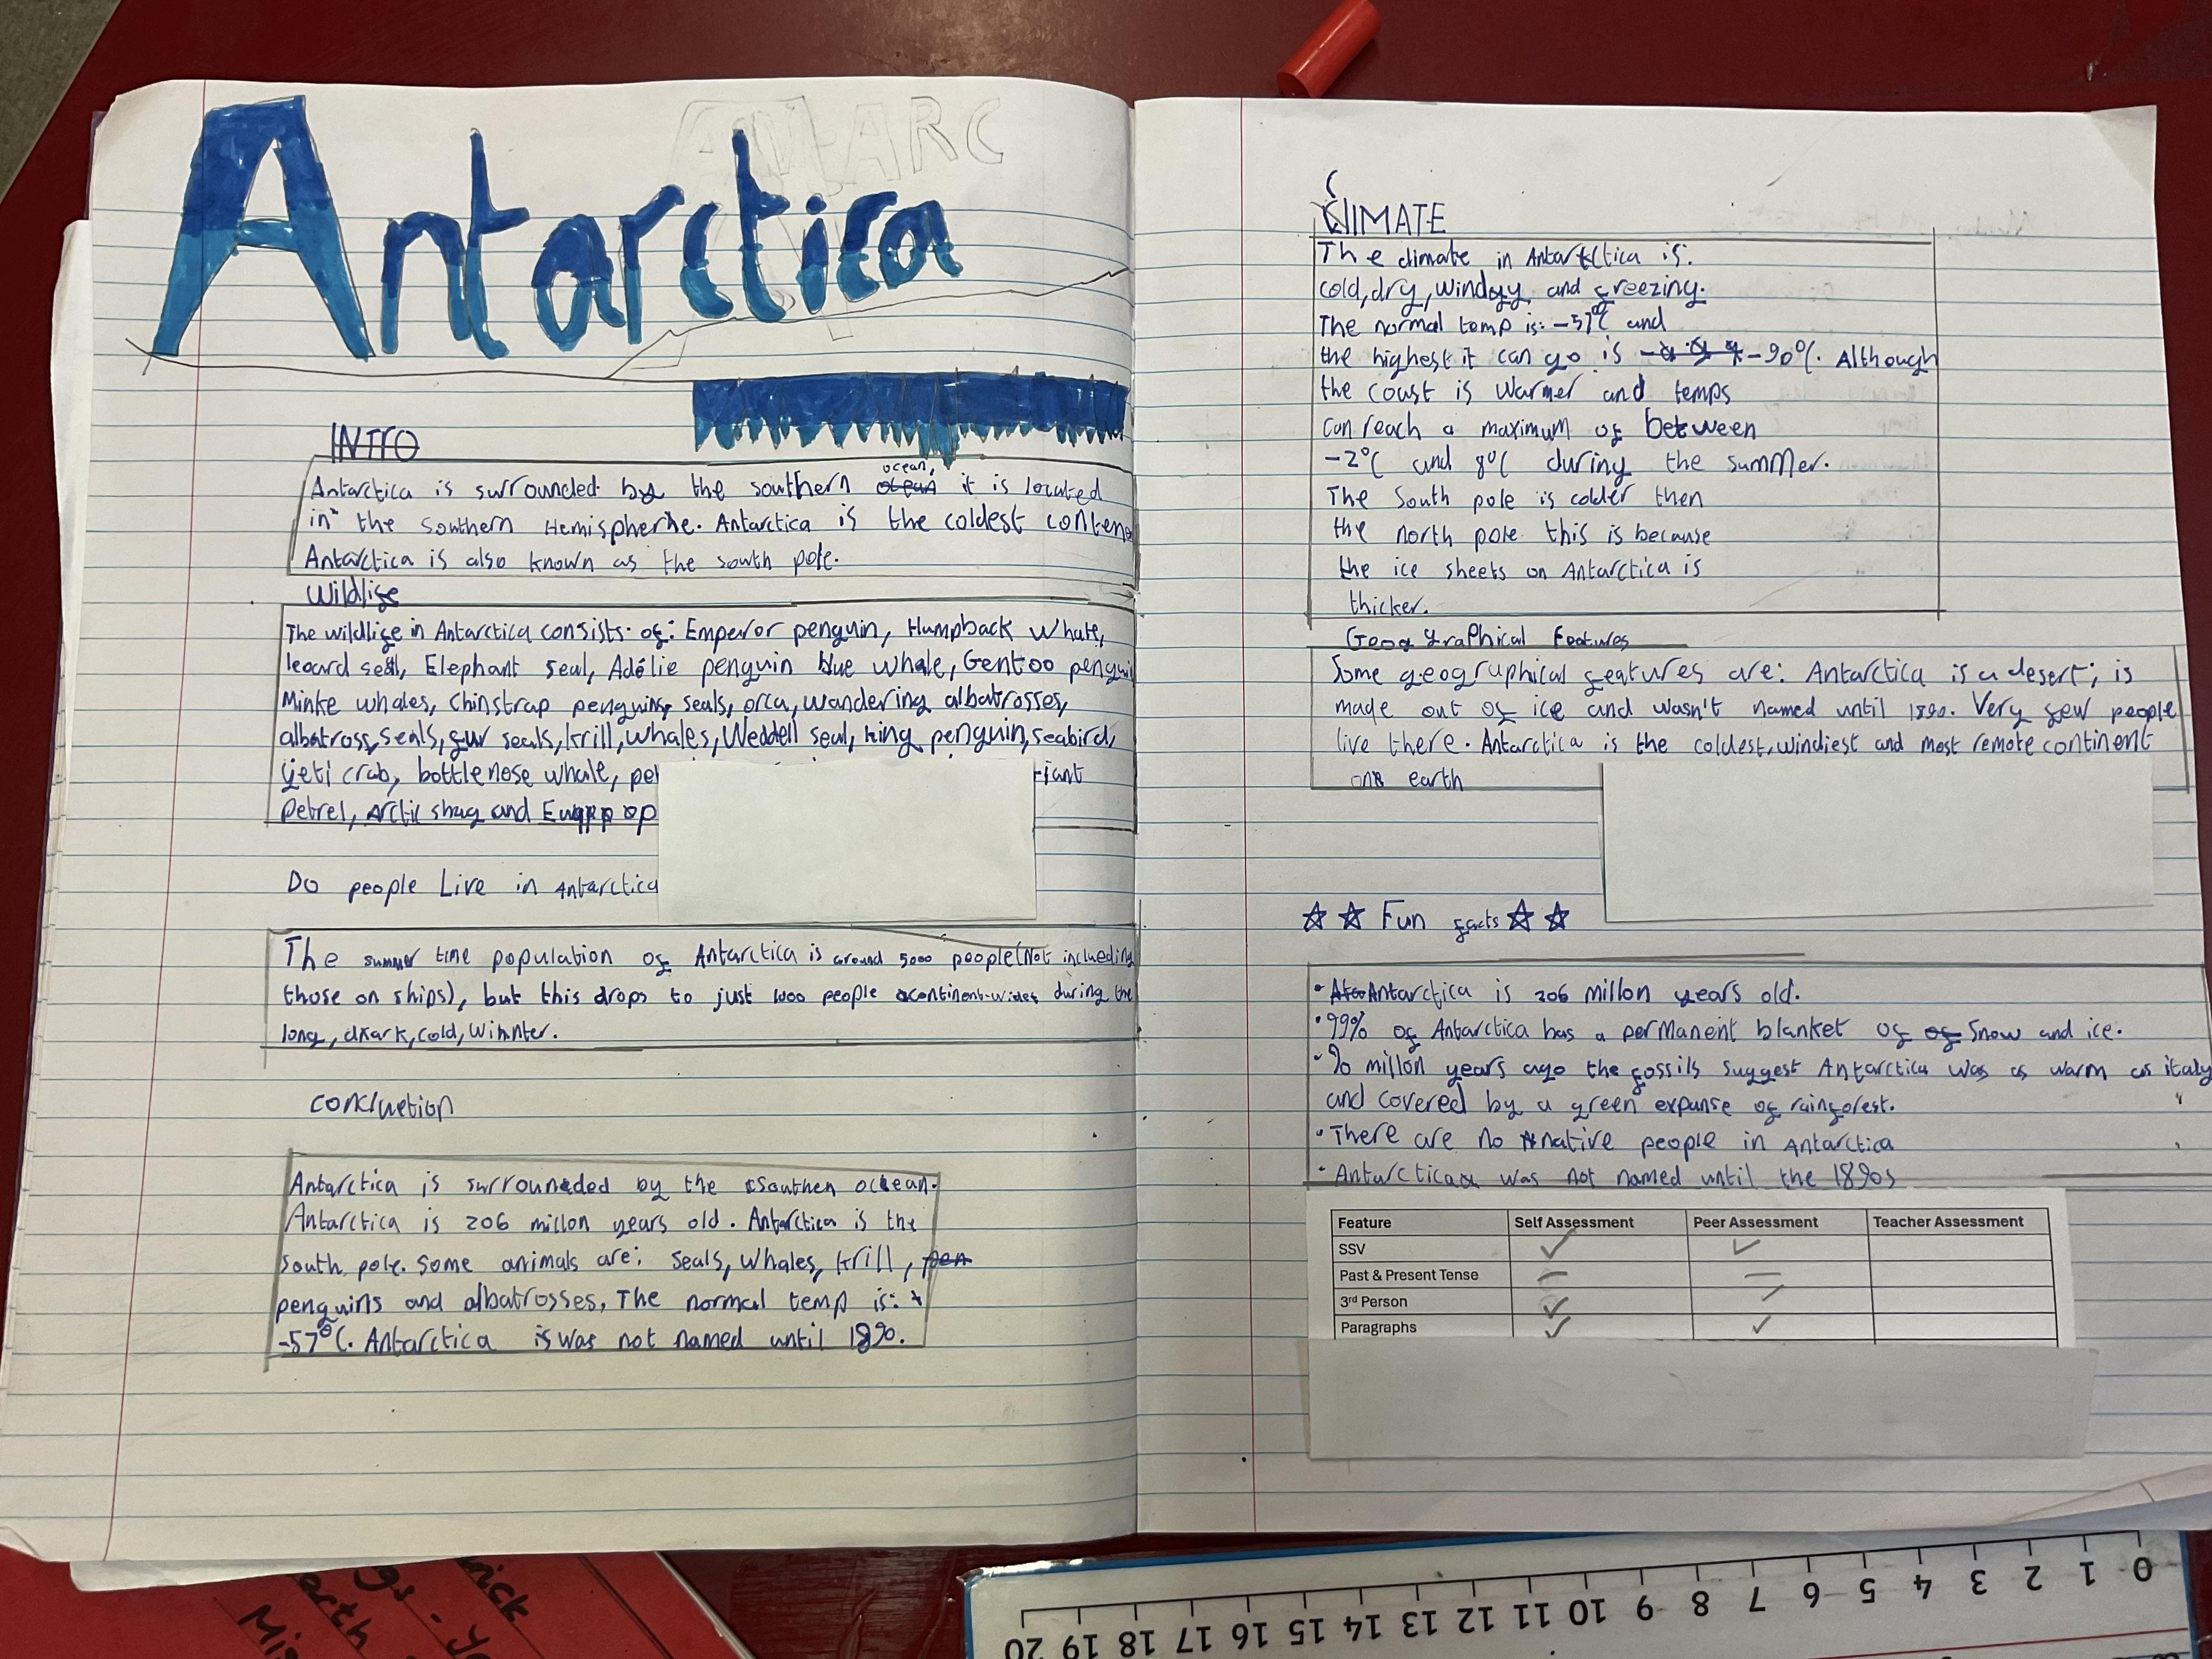 Antarctica
ANTARC
INTRO
ocean,
Antarctica is surrounded by the southern ocean it is located
in the southern Hemispherhe. Antarctica is the coldest conten
Antarctica is also known as the south pole.
Wildlife
The wildlife in Antarctica consists of: Emperor penguin, Humpback Whale,
leoard seal, Elephant seal, Adélie penguin blue whale, Gentoo pengui
Minke whales, Chinstrap penguins, seals, orca, wandering albatrosses,
albatross, seals, fur seals, krill, whales, Weddell seal, king penguin, seabird,
yeti crab, bottlenose whale, pe iant
Petrel, Arctic shag and
Do people Live in Antarctica
The summer time population of Antarctica is around 5000 people (Not inclueding
those on ships), but this drops to just 1000 people continent-wides during the
long, dark, cold, Winnter.
concluetion
Antarctica is surrounded by the Southen ocean.
Antarctica is 206 millon years old. Antarctica is the
south pole. Some animals are: seals, whales, krill, pen
penguins and albatrosses, The normal temp is:
-57°C. Antarctica is was not named until 1890.
CLIMATE
The climate in Antarctica is:
cold, dry, windy, and freezing.
The normal temp is: -57°C and
the highest it can go is -90°C. Although
the coast is warmer and temps
can reach a maximum of between
-2°C and 8°C during the summer.
The South pole is colder then
the north pole this is because
the ice sheets on Antarctica is
thicker.
Geographical Features
Some geographical features are: Antarctica is a desert; is
made out of ice and wasn't named until 1890. Very few people
live there. Antarctica is the coldest, windiest and most remote continent
one earth
☆ ☆ Fun facts ☆ ☆
• Antarctica is 206 millon years old.
• 99% of Antarctica has a permanent blanket of of Snow and ice.
• 90 millon years ago the fossils suggest Antarctica was as warm as italy
and covered by a green expanse of rainforest.
• There are no native people in Antarctica
• Antarctica was not named until the 1890s
Feature Self Assessment Peer Assessment Teacher Assessment
SSV ✓ ✓
Past & Present Tense – –
3rd Person ✓ /
Paragraphs ✓ ✓
rick
gs - ye
arth
Mis
0 1 2 3 4 5 6 7 8 9 10 11 12 13 14 15 16 17 18 19 20